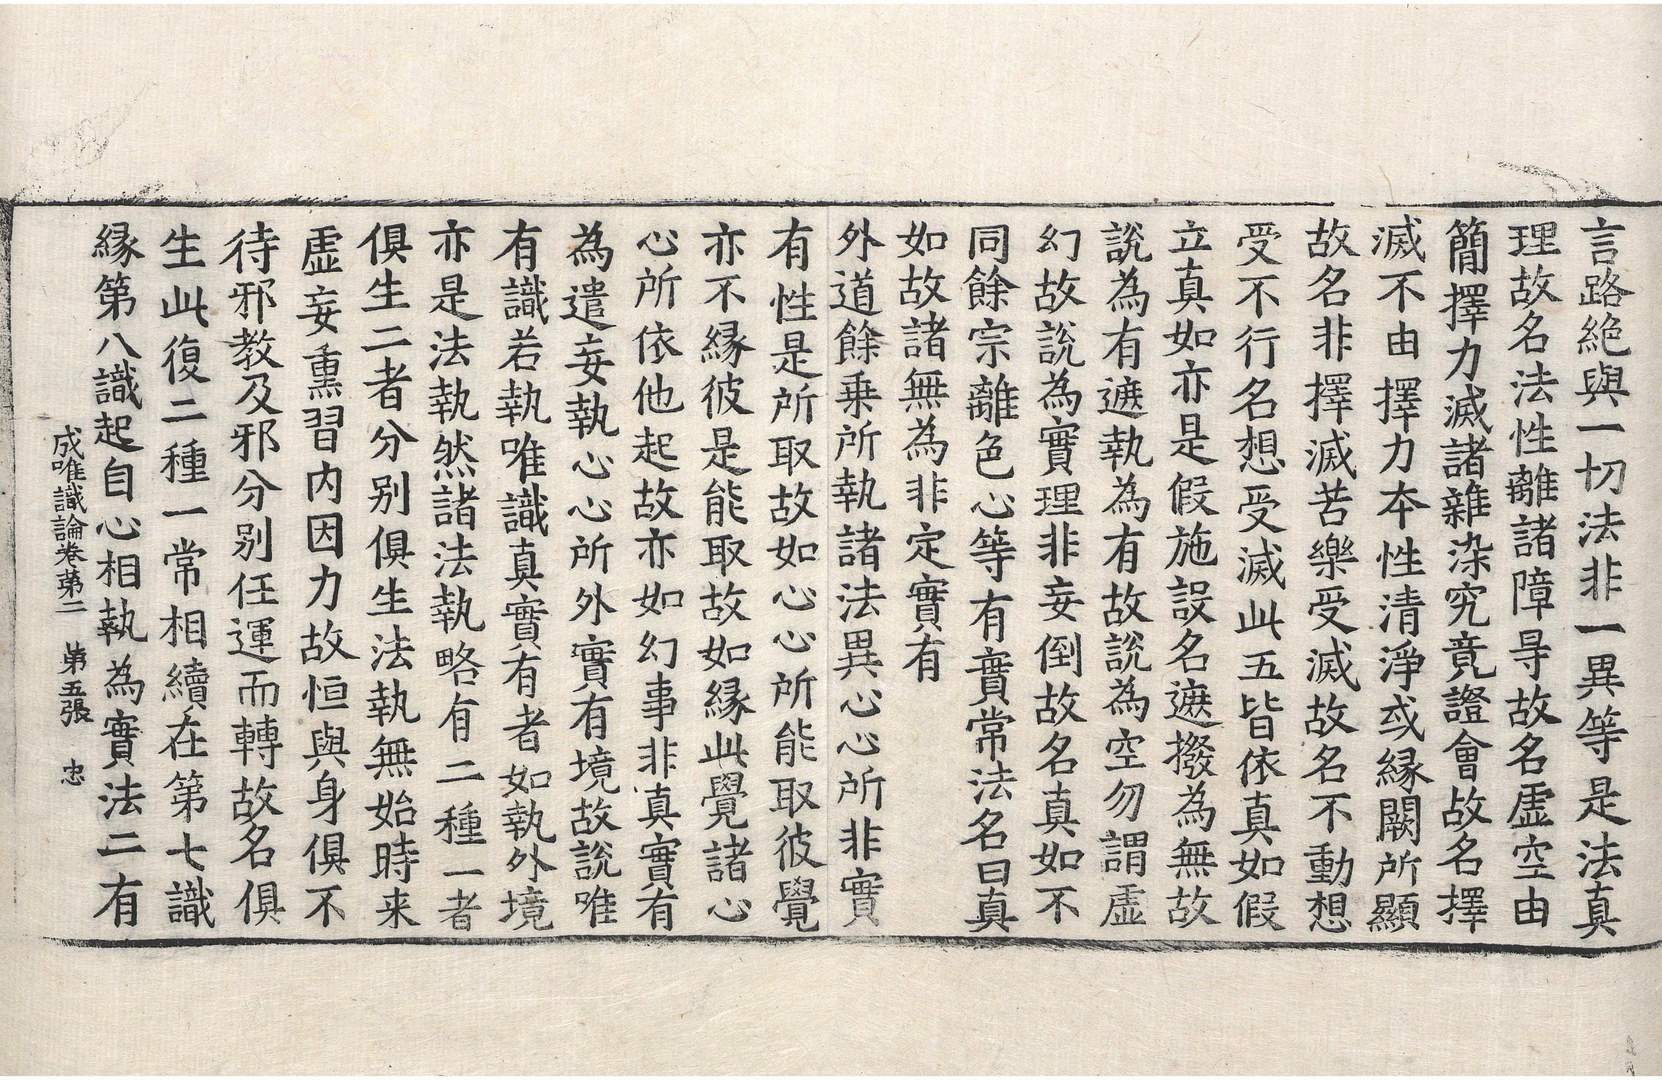 言路絶與一切法非一異等是法真
理故名法性離諸障㝵故名虛空由
簡擇力滅諸雜染究竟證會故名擇
滅不由擇力本性清淨或縁闕所顯
故名非擇滅苦樂受滅故名不動想
受不行名想受滅此五皆依真如假
立真如亦是假施設名遮撥為無故
說為有遮執為有故說為空勿謂虛
幻故說為實理非妄倒故名真如不
同餘宗離色心等有實常法名曰真
如故諸無為非定實有
外道餘乗所執諸法異心心所非實
有性是所取故如心心所能取彼覺
亦不縁彼是能取故如縁此覺諸心
心所依他起故亦如幻事非真實有
為遣妄執心心所外實有境故說唯
有識若執唯識真實有者如執外境
亦是法執然諸法執略有二種一者
俱生二者分別俱生法執無始時来
虛妄熏習内因力故恒與身俱不
待邪教及邪分別任運而轉故名俱
生此復二種一常相續在第七識
縁第八識起自心相執為實法二有
成唯識論卷第二　第五張　忠